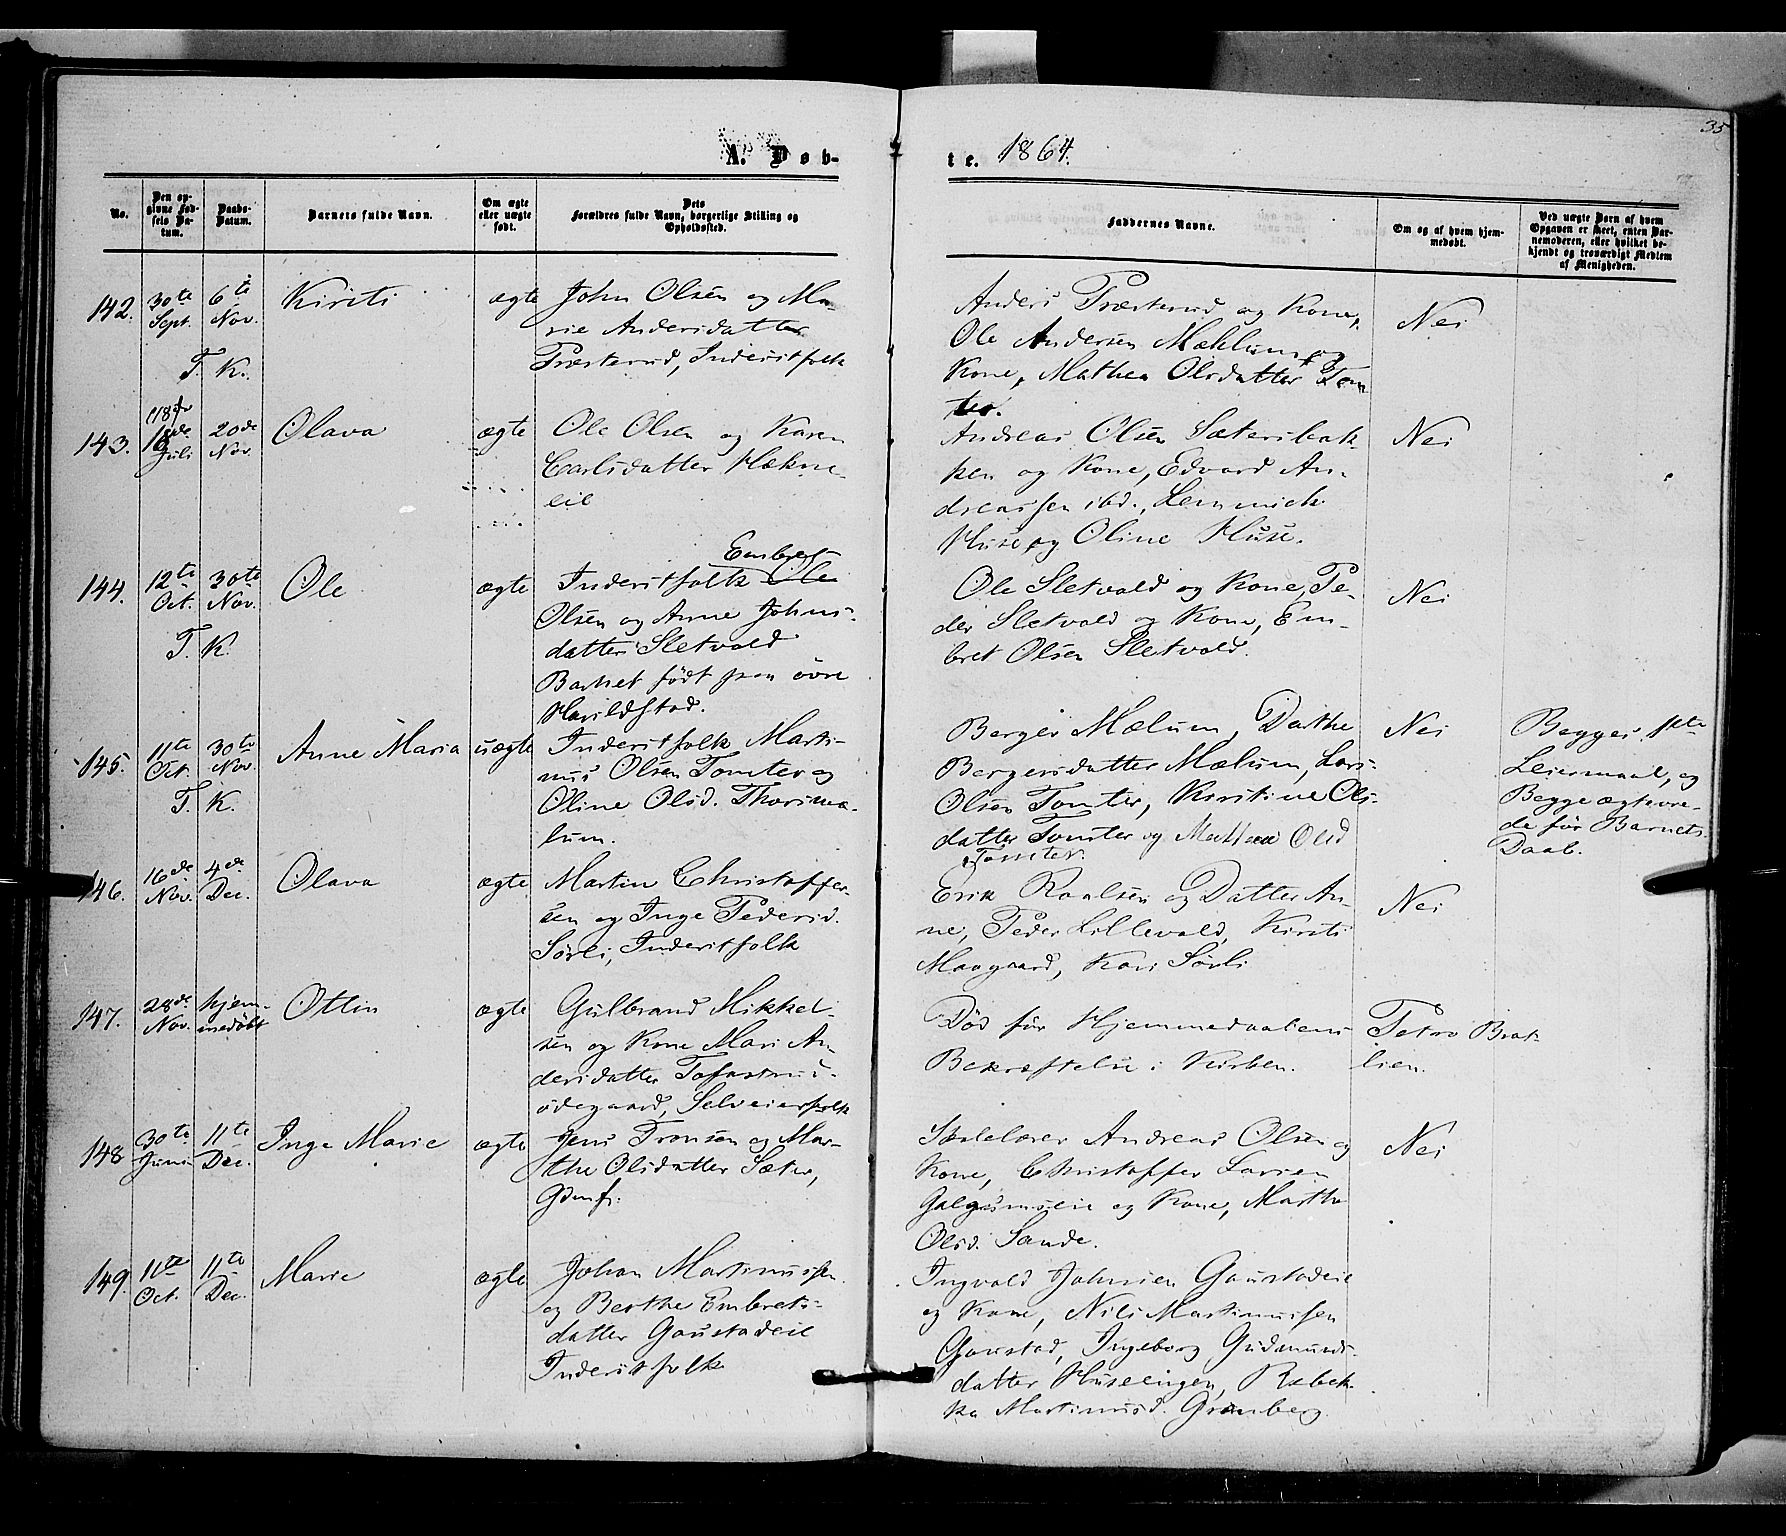 35
A. Døb-
te. 1864.
No.
Den op-
givne Fød-
sels Da-
tum.
Daabs-
Datum.
Barnets fulde Navn.
Om ægte
eller uægte
født.
Dets
Forældres fulde Navn, borgerlige Stilling og
Opholdssted.
Faddernes Navne.
Om og af hvem hjem-
medøbt.
Ved uægte Børn af hvem
Opgaven er skeet, enten Bar-
nemoderen, eller hvilket be-
kjendt og troværdigt Medlem
af Menigheden.
142.
30te
Sept.
6te
Nov.
T. K.
Kirsti
ægte
John Olsen og Ma-
rie Andersdatter
Præsterud, Inderstfolk
Anders Præsterud og Kone,
Ole Andersen Mæhlum og
Kone, Mathea Olsdatter Tom
ter.
Nei
143.
18de
Juli
20de
Nov.
Olava
ægte
Ole Olsen og Karen
Carlsdatter Hækne-
eie
Andreas Olsen Sætersbak-
ken og Kone, Edvard An-
dreassen ibd., Lemmich
Huse og Oline Huse.
Nei
144.
12te
Oct.
30te
Nov.
T. K.
Ole
ægte
Embret
Inderstfolk Ole
Olsen og Anne Johns-
datter Sletvold
Barnet født paa øvre
Harildstad.
Ole Sletvold og Kone, Pe-
der Sletvold og Kone, Em-
bret Olsen Sletvold.
Nei
145.
11te
Oct.
30te
Nov.
T. K.
Anne Maria
uægte
Inderstfolk Marti-
nus Olsen Tomter og
Oline Olsd. Thorsmæ-
lum.
Berger Mælum, Dorthe
Bergersdatter Mælum, Lars
Olsen Tomter, Kirstine Ols-
datter Tomter og Mathea Olsd
Tomter.
Nei
Begges 1ste
Leiermaal, og
Begge ægtevie-
de før Barnets
Daab.
146.
16de
Nov.
4de
Dec.
Olava
ægte
Martin Christoffer-
sen og Inge Pedersd.
Sørli, Inderstfolk
Erik Roalsen og Datter An-
ne, Peder Lillevold, Kirsti
Moogaard, Kari Sørli
Nei
147.
28de
Nov.
hjem-
medøbt
Ottin
ægte
Gulbrand Mikkel-
sen og Kone Mari An-
dersdatter Tofastrud-
ødegaard, Selveierfolk
Død før Hjemmedaabens
Bekræftelse i Kirken.
Petro Brat-
lien.
148
30te
Juni
11te
Dec.
Inge Marie
ægte
Jens Tronsen og Mar-
the Olsdatter Sæter,
Gdmf.
Skolelærer Andreas Olsen og
Kone, Christoffer Larsen
Galgumseie og Kone, Marthe
Olsd. Sande.
Nei
149.
11te
Oct.
11te
Dec.
Marie
ægte
Johan Martinussen
og Berthe Embrets-
datter Gaustadeie
Inderstfolk
Ingvald Johnsen Gaustadeie
og Kone, Nils Martinussen
Gaustad, Ingeborg Gudmunds-
datter Huseengen, Rebek-
ka Martinusd. Grønberg.